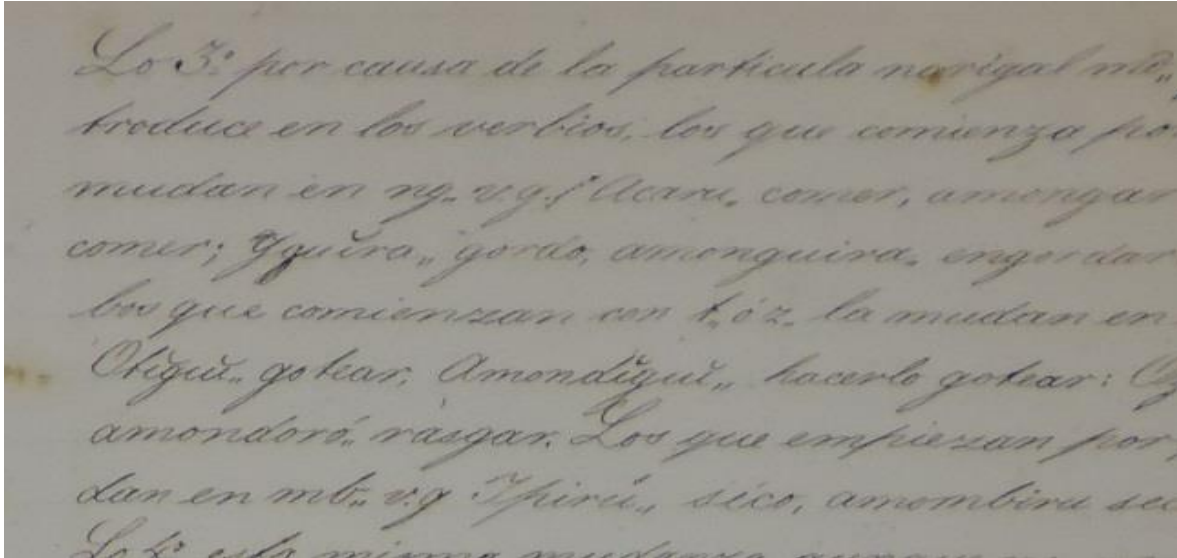 Lo 3º por causa de la particula narigal mo„
troduce en los verbios, los que comienza po
mudan en ng„ v.g.! Acaru„ comer, amongar
comer; Yguĭra„ gordo, amonguira„ engordar
bos que comienzan con t„ ó z„ la mudan en
Otĭguĭ„ gotear, Amondĭguĭ„ hacerlo gotear:
amondoró„ rasgar. Los que empiezan por
dan en mb„ v.g Ypirú„ seco, amombiru sec
Lo 4º esta misma mudanza